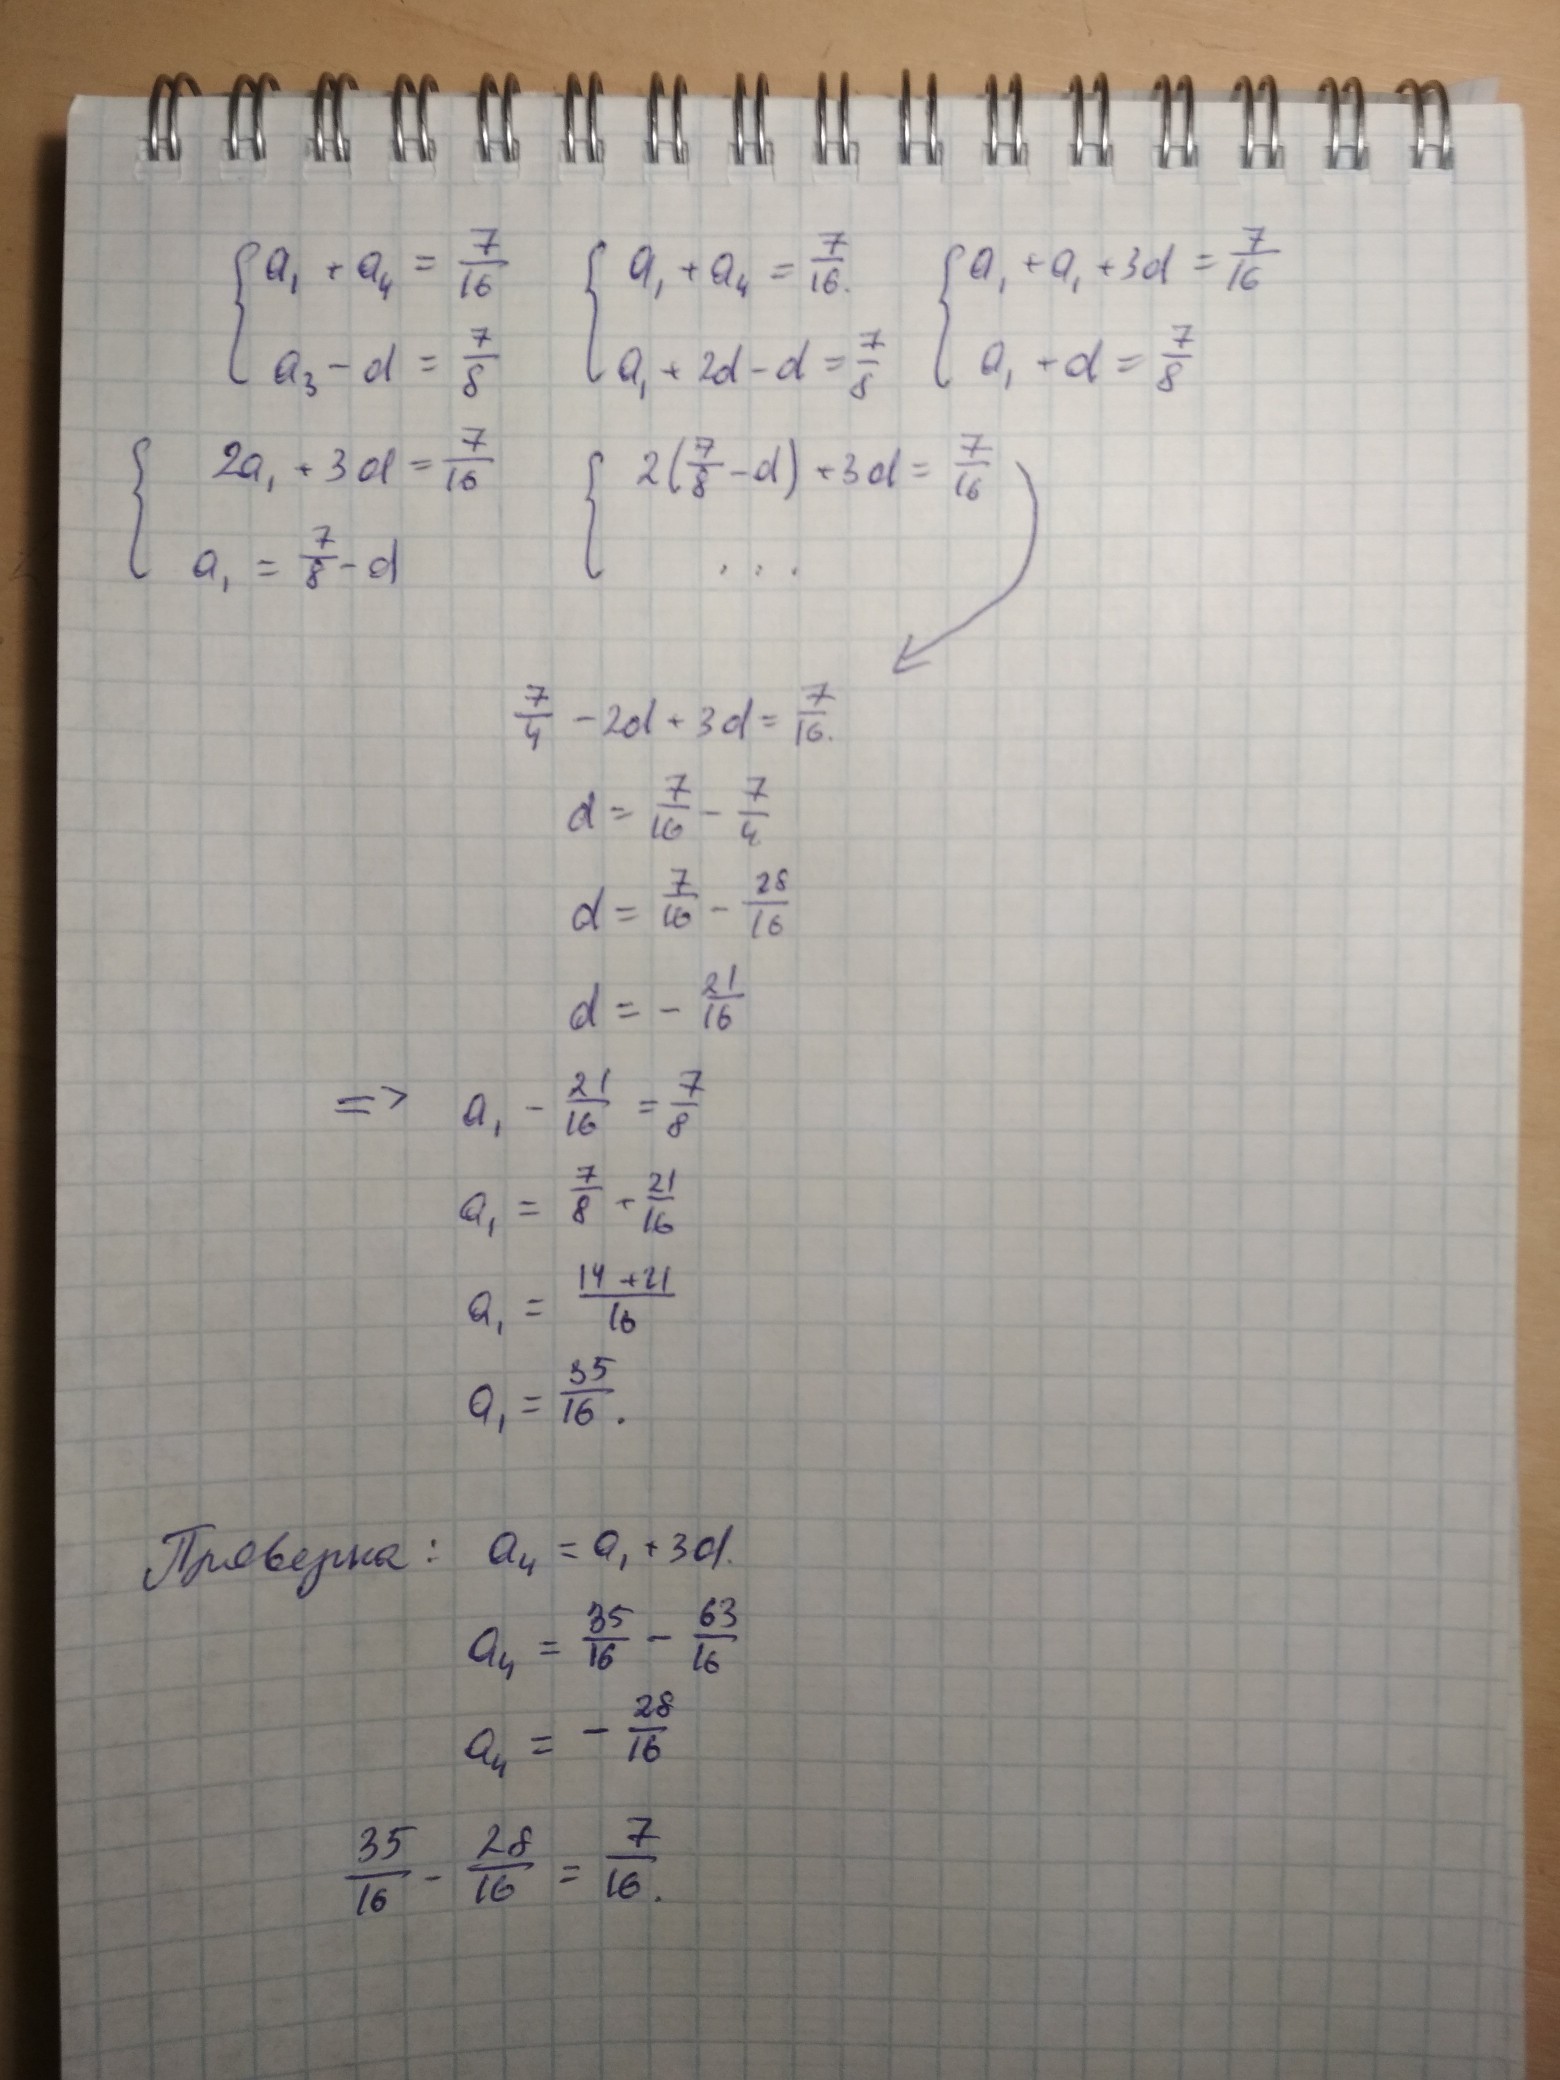 { a₁ + a₄ = 7/16 { a₁ + a₄ = 7/16. { a₁ + a₁ + 3d = 7/16
a₃ - d = 7/8 a₁ + 2d - d = 7/8 a₁ + d = 7/8
{ 2a₁ + 3d = 7/16 { 2(7/8 - d) + 3d = 7/16
a₁ = 7/8 - d ...
7/4 - 2d + 3d = 7/16.
d = 7/16 - 7/4
d = 7/16 - 28/16
d = - 21/16
=> a₁ - 21/16 = 7/8
a₁ = 7/8 + 21/16
a₁ = (14 + 21)/16
a₁ = 35/16.
Проверка: a₄ = a₁ + 3d.
a₄ = 35/16 - 63/16
a₄ = - 28/16
35/16 - 28/16 = 7/16.